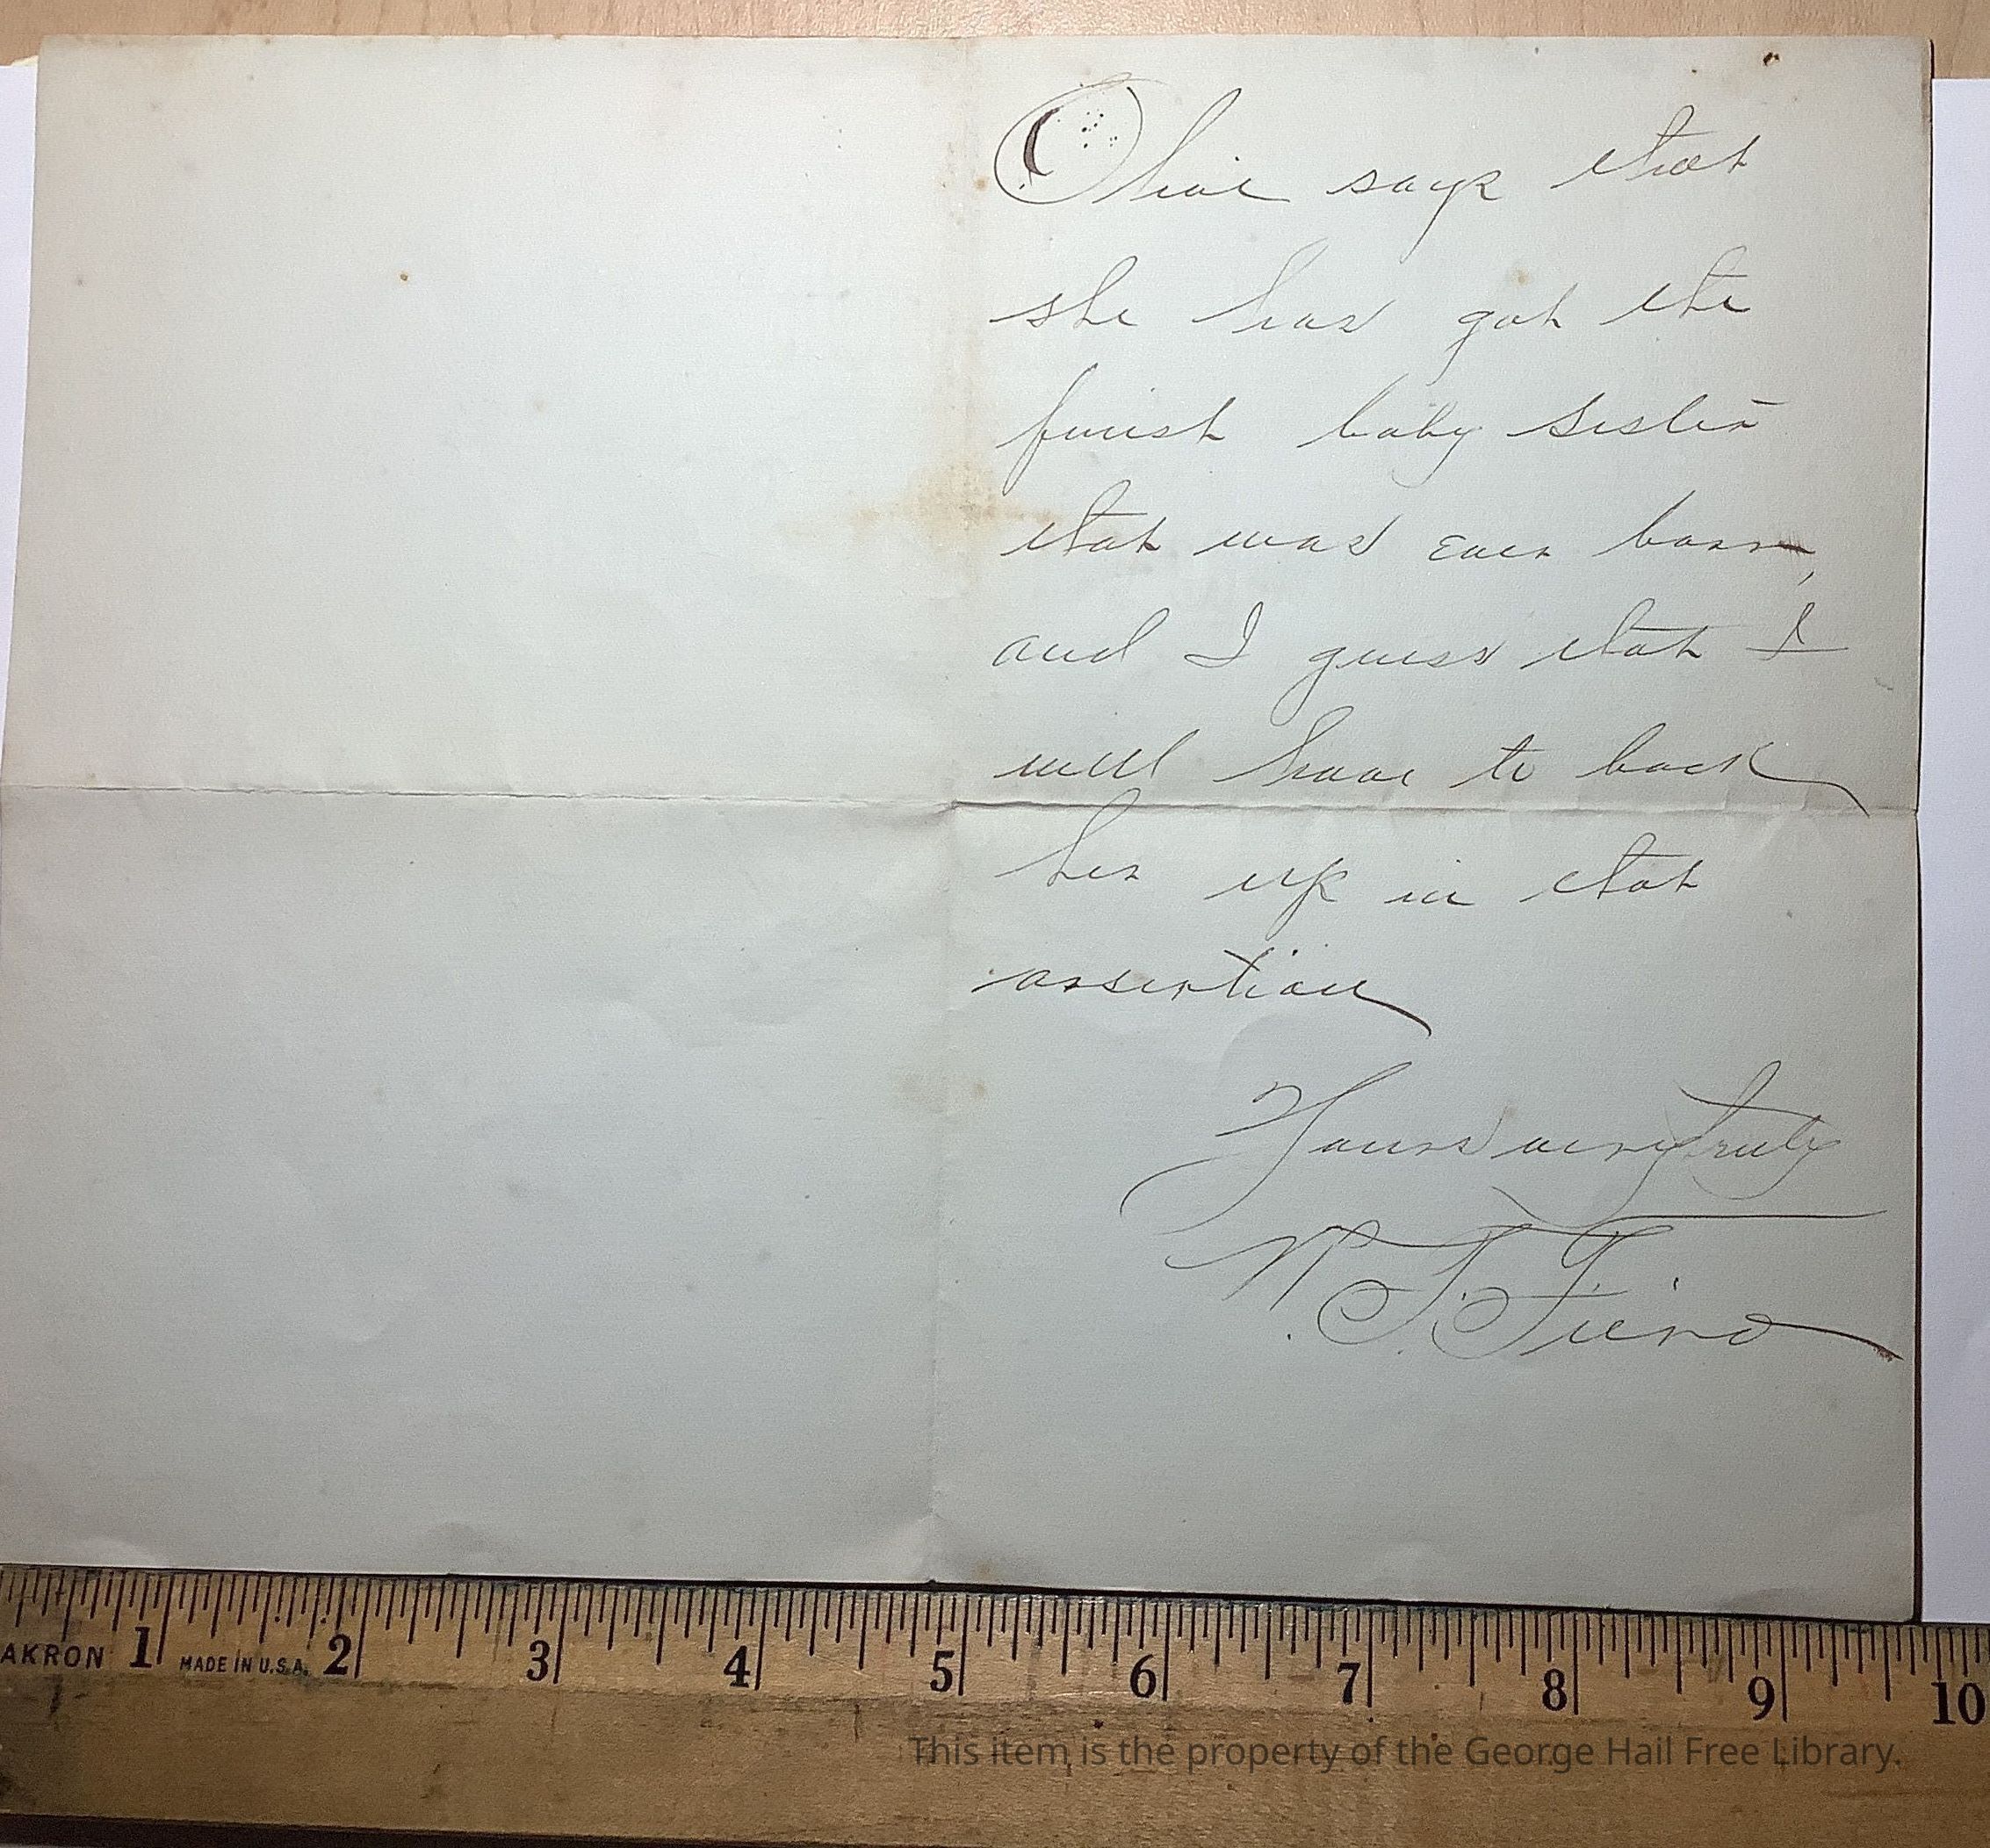 Olive says that
she has got the
finest baby sister
that was ever born,
and I guess that I
will have to back
her up in that
assertion
Yours very truly
AKRON 1 MADE IN U.S.A. 2 3 4 5 6 7 8 9 10
This item is the property of the George Hail Free Library.